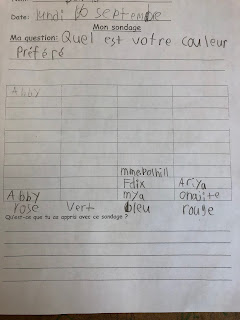 Date: lundi 16 septembre
Mon sondage
Ma question: Quel est votre couleur
Préféré
Abby
mme Polhill
Félix Ariya
Abby mya onajite
rose Vert bleu rouge
Qu'est-ce que tu as appris avec ce sondage ?